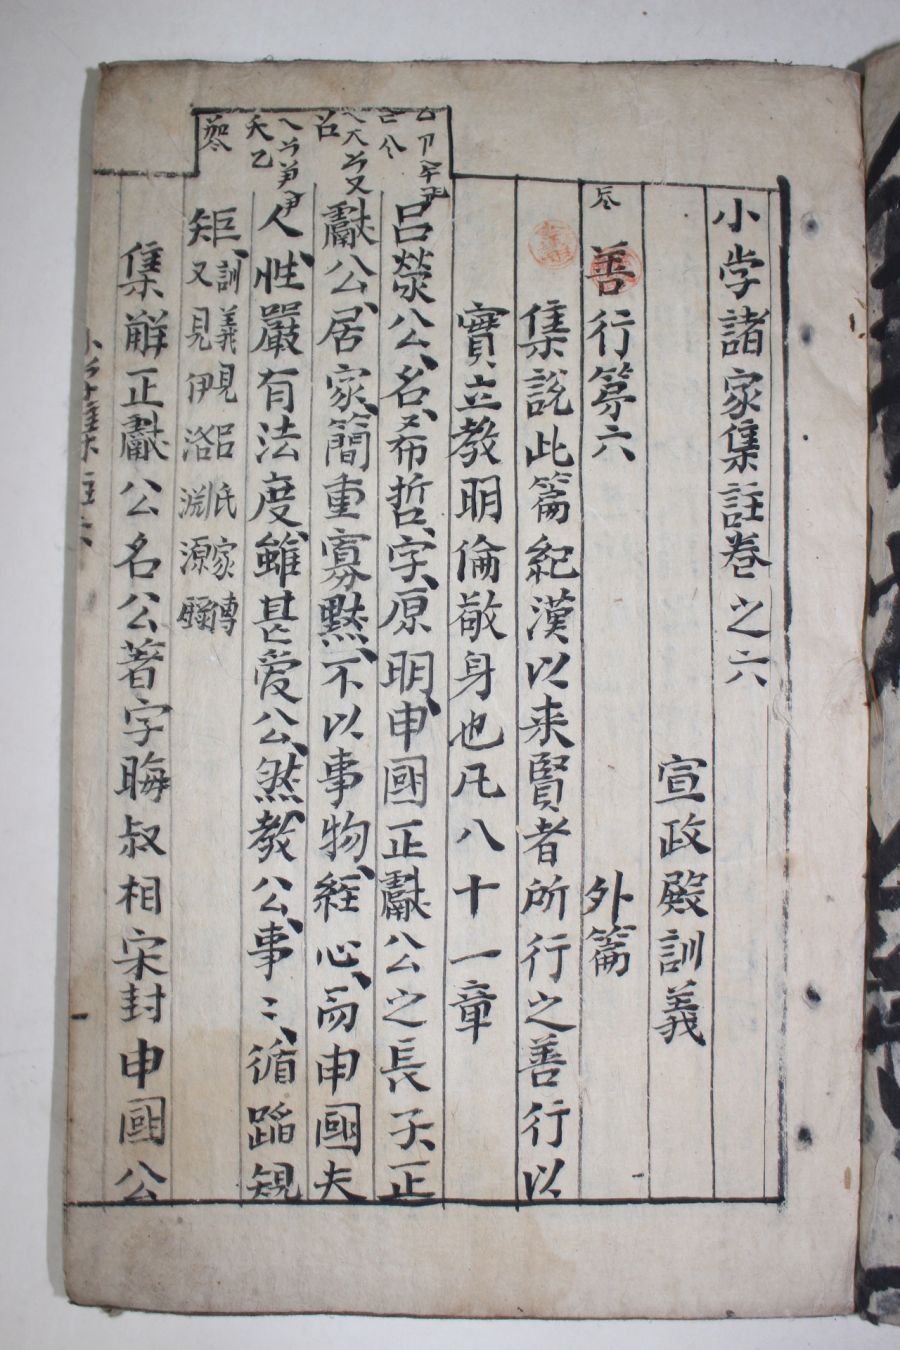 小学諸家集註卷之六
宣政殿訓義
善行第六 外篇
集說此篇紀漢以来賢者所行之善行以
實立教明倫敬身也凡八十一章
呂滎公名希哲字原明申國正獻公之長子正
獻公居家簡重寡黙不以事物經心而申國夫
人性嚴有法度雖甚爱公然教公事〻循蹈規
矩 訓義見呂氏家傳
又見伊洛淵源錄
集解正獻公名公著字晦叔相宋封申國公